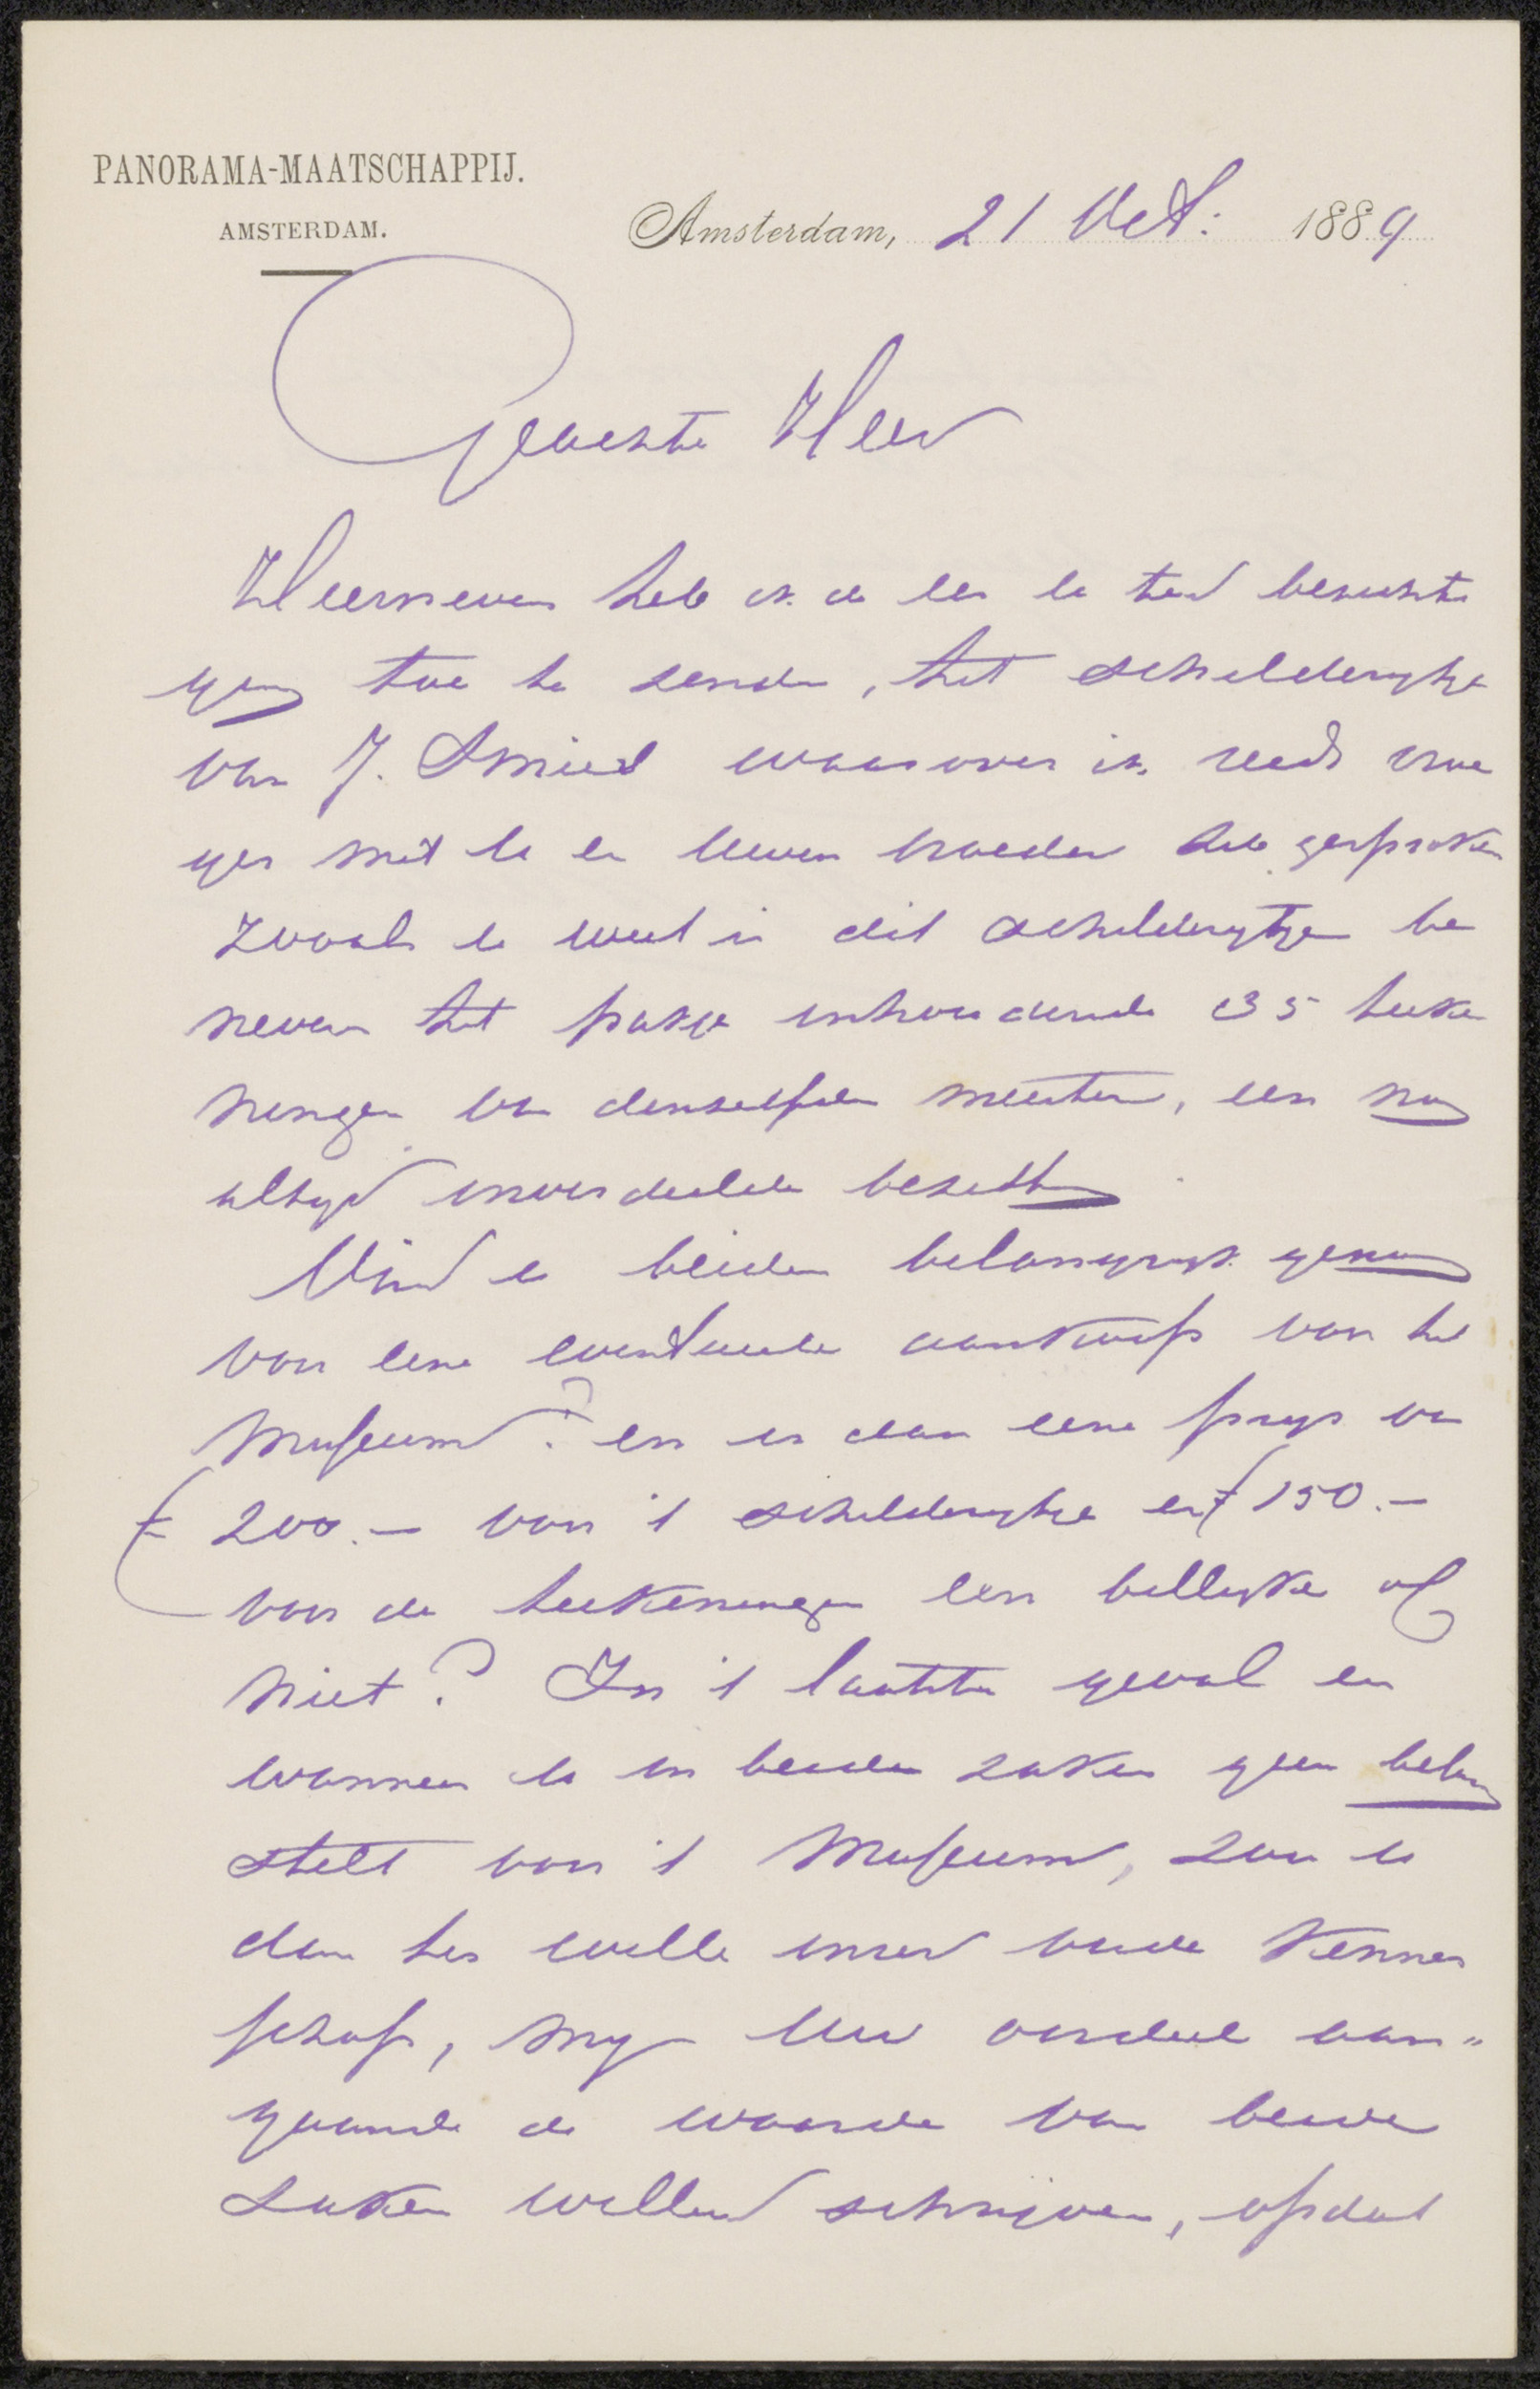 PANORAMA-MAATSCHAPPIJ.
AMSTERDAM.
Amsterdam, 21 Oct: 1889
Geachte Heer
Hiernevens heb ik de eer U ter bezichti
ging toe te zenden, het schilderijtje
van J. Smies waarover ik reeds vroe
ger met U en Uwen broeder heb gesproken
Zooals U weet is dit schilderijtje be
nevens het pakje inhoudende 35 teeke
ningen van denzelfden meester, een nog
altijd onverdeelde bezitting
Vind U beiden belangrijk genoeg
voor eene eventueele aankoop voor het
Museum? en is dan eene prijs van
ƒ 200.- voor 't schilderijtje en ƒ 150.-
voor de teekeningen een billijke of
niet? In 't laatste geval en
wanneer U in beide zaken geen belang
stelt voor 't Museum, zou U
dan ter wille onzer oude kennis
schap, mij Uw oordeel aan-
gaande de waarde van beide
zaken willen schrijven, opdat